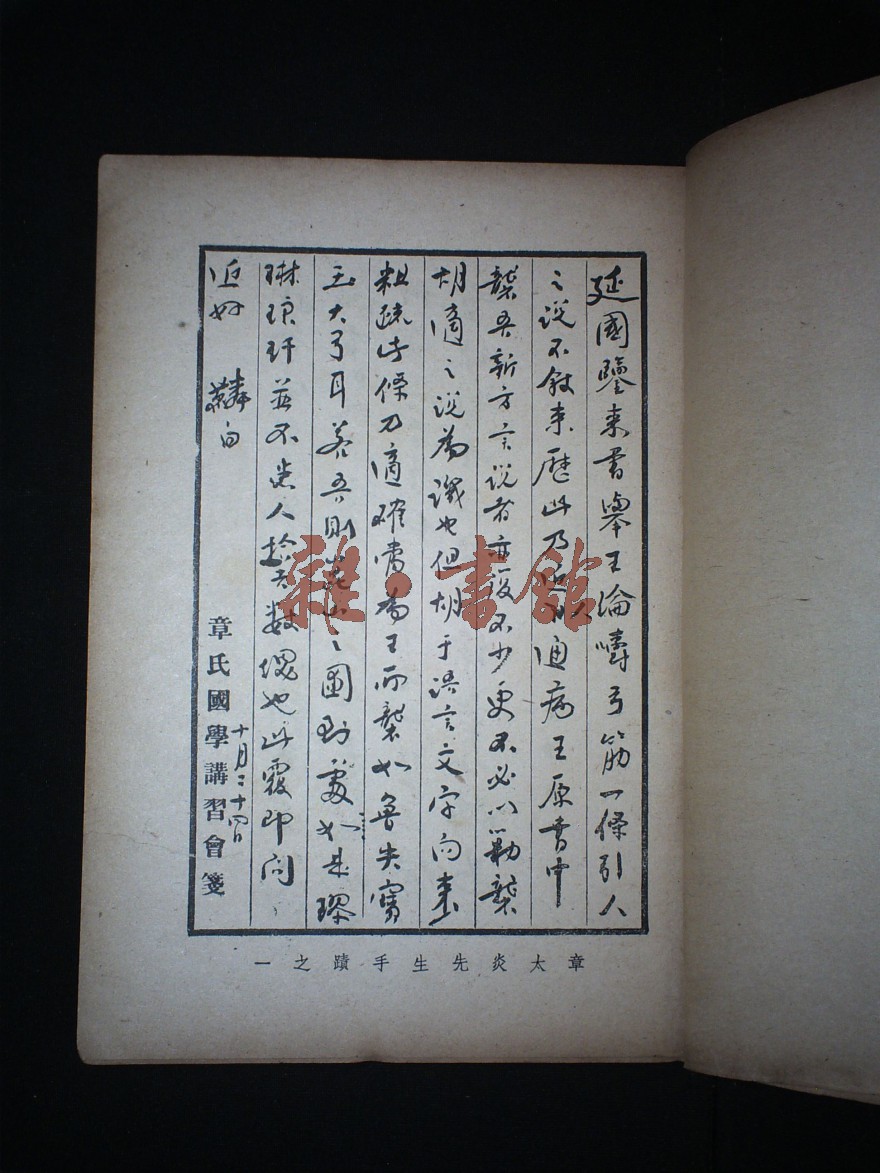 延國鑒來書舉王論嚼弓筋一條引人
之說不敘來歷此乃通病王原書中
襲吾新方言說者亦復不少更不必以勦襲
胡適之說為譏也但胡于語言文字向來
粗疏此條乃適確當為王所襲如魯失寶
玉大弓耳若吾則崑山之國到處如是璆
琳琅玕並不患人拾數塊也此覆即問
近好 麟白
十月二十四日
章氏國學講習會箋
章太炎先生手蹟之一
雜·書館